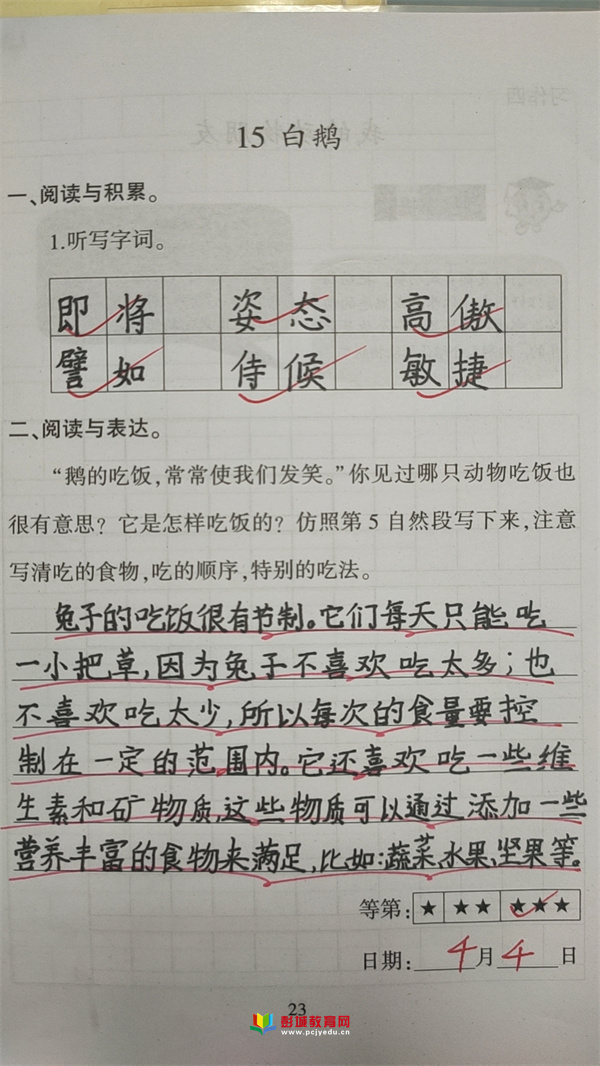 15 白鹅
一、阅读与积累。
1.听写字词。
即将 姿态 高傲
譬如 侍候 敏捷
二、阅读与表达。
“鹅的吃饭,常常使我们发笑。”你见过哪只动物吃饭也
很有意思?它是怎样吃饭的?仿照第5自然段写下来,注意
写清吃的食物,吃的顺序,特别的吃法。
兔子的吃饭很有节制。它们每天只能吃
一小把草,因为兔子不喜欢吃太多;也
不喜欢吃太少,所以每次的食量要控
制在一定的范围内。它还喜欢吃一些维
生素和矿物质,这些物质可以通过添加一些
营养丰富的食物来满足,比如:蔬菜,水果,坚果等。
等第: ★ ★★ ★★★
日期: 4 月 4 日
23
彭城教育网
www.pcjyedu.cn